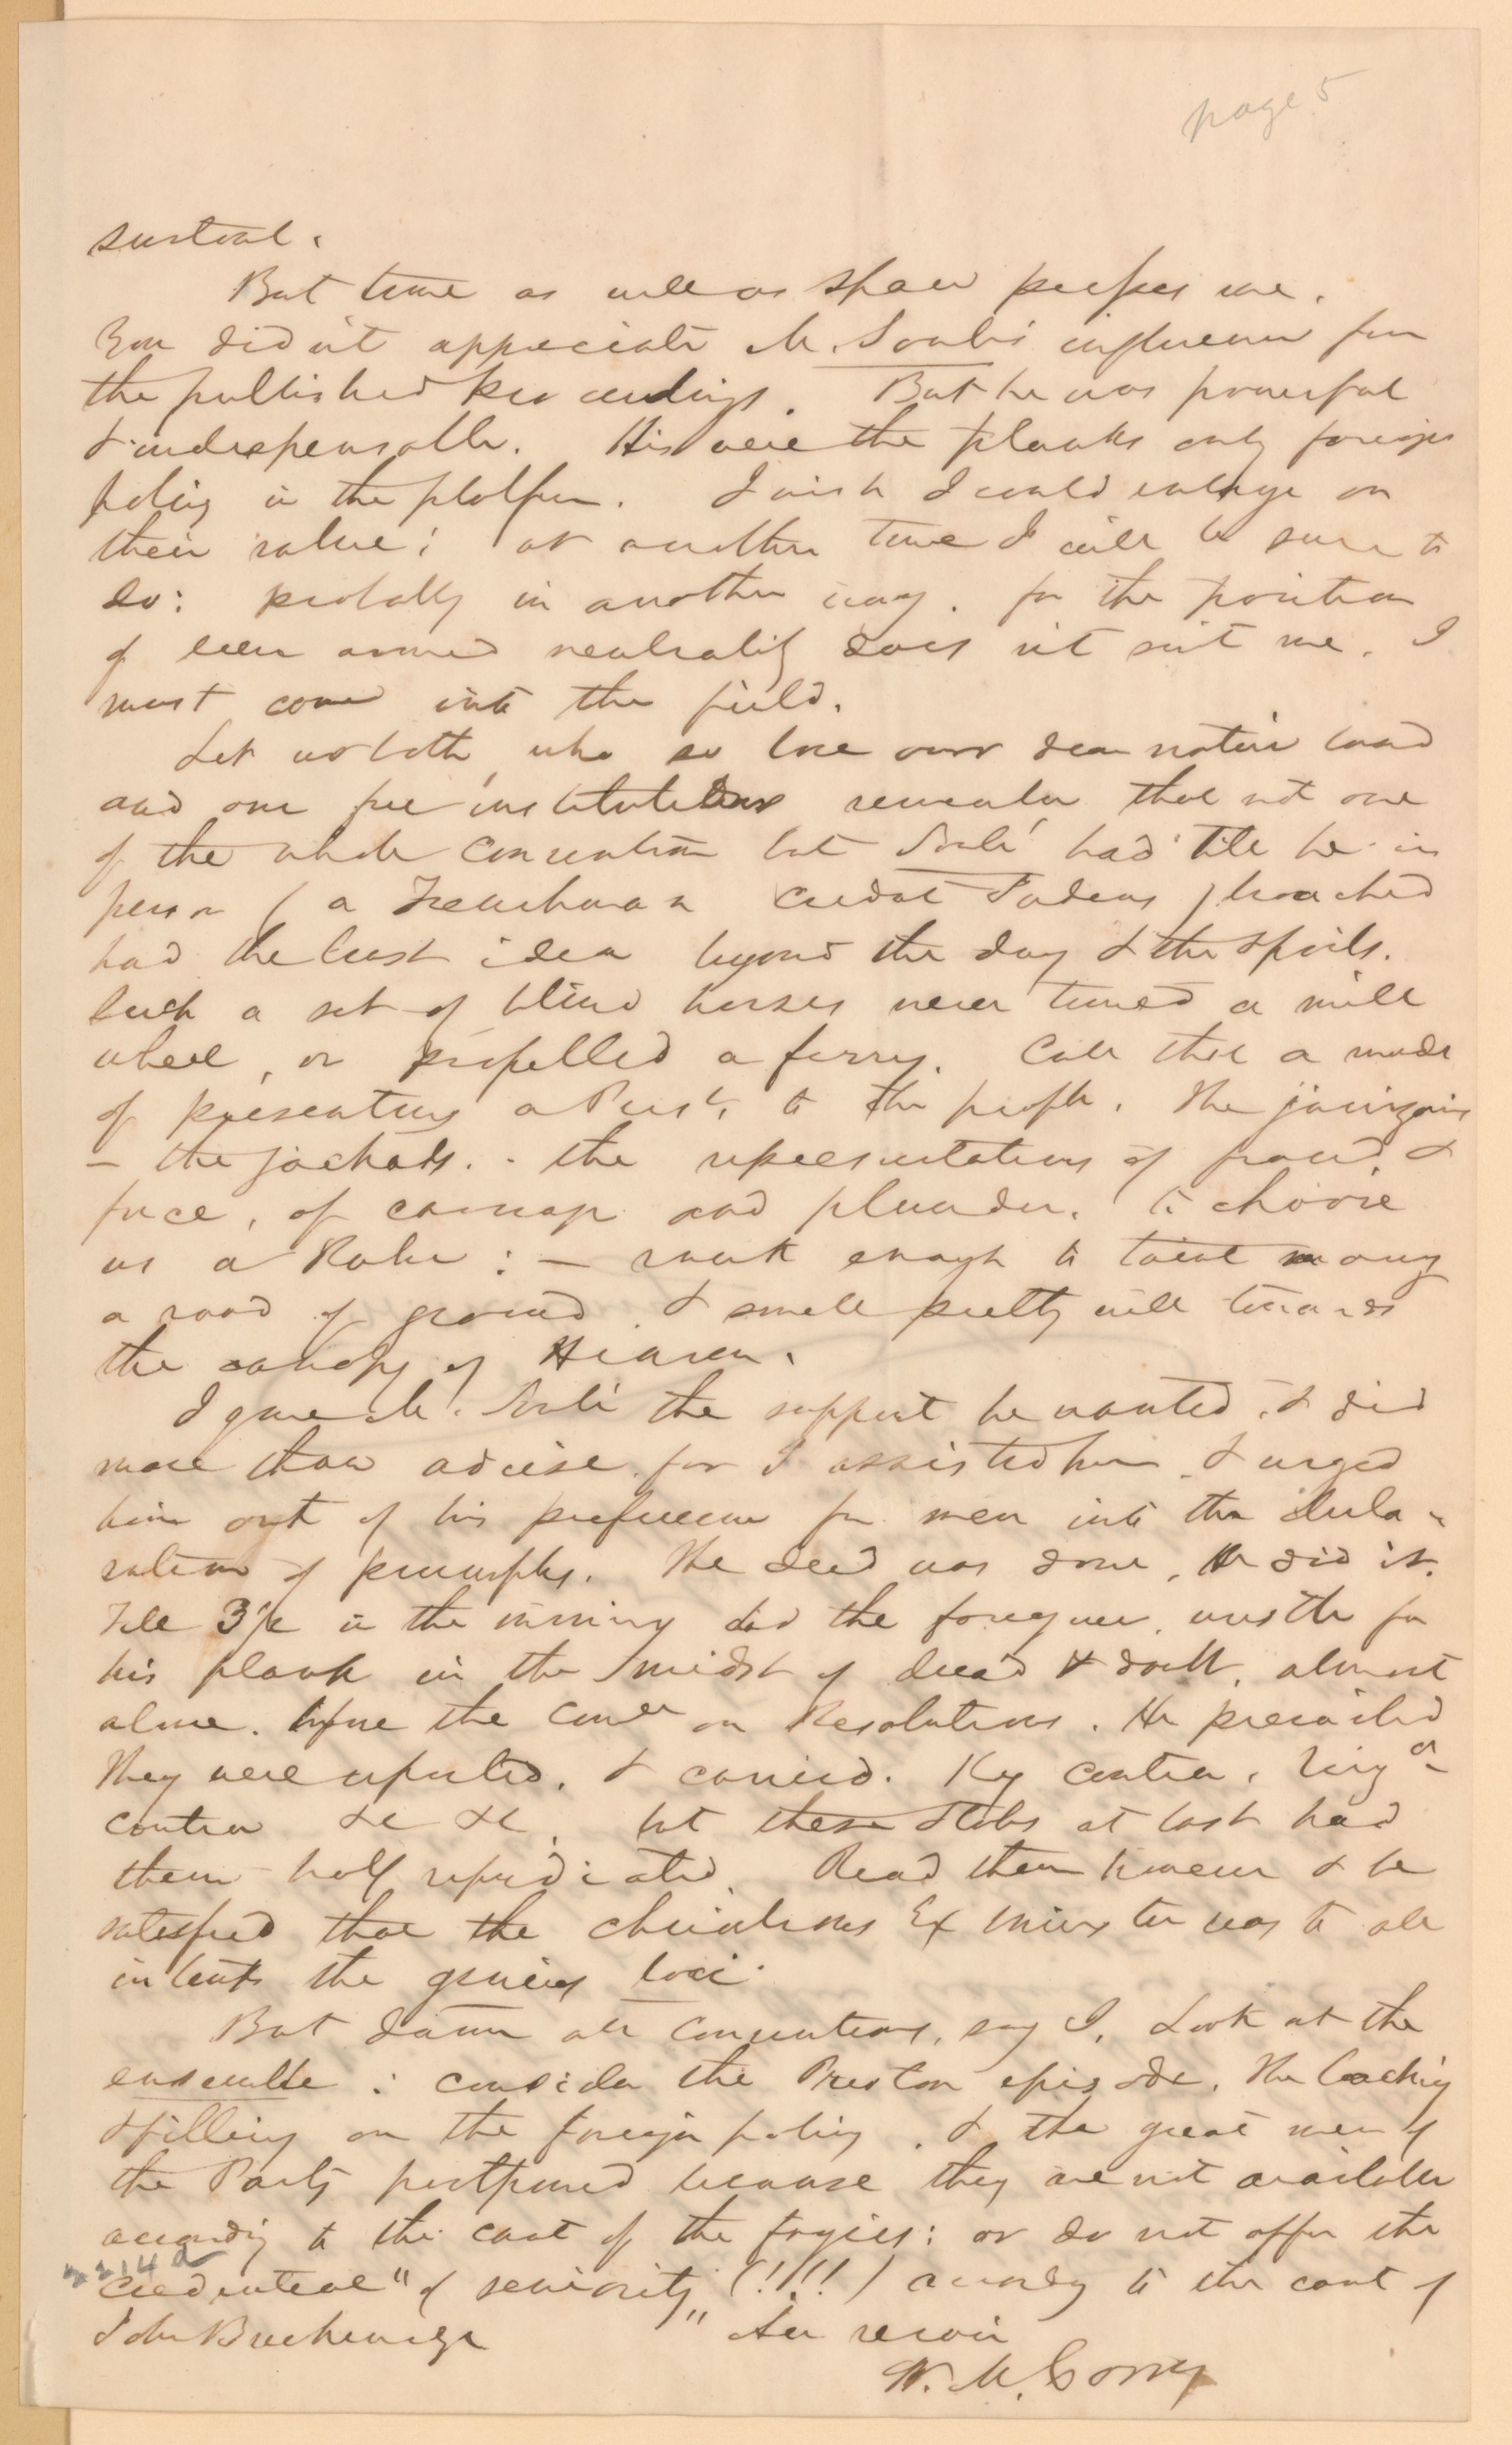 page 5
sustain.
But time as well as space presses me.
You didn't appreciate Mr. Soulé's influence from
the published proceedings. But he was powerful
& indispensable. His were the planks only foreign
policy in the platform. I wish I could enlarge on
their value; at another time I will be sure to
do: probably in another way. for the position
of even armed neutrality does n't suit me. I
must come into the field.
Let us both, who so love our dear native land
and our free institutions remember that not one
of the whole Convention but Soulé had till he in
person (a Frenchman credat Judaeus) broached
had the least idea beyond the day & the spoils.
Such a set of blind horses never turned a mill
wheel, or propelled a ferry. Call that a mode
of presenting a Prest. to the people. The
– the jackals. - the representatives of fraud &
force, of carnage and plunder. to choose
us a Ruler: – rank enough to taint many
a rood of ground & smell pretty well towards
the canopy of Heaven.
I gave Mr. Soulé the support he wanted, & did
more than advise for I assisted him, & urged
him out of his preference for men into the decla-
ration of principles. The deed was done, He did it.
Till 3½ in the morning did the foreigner wrestle for
his plank in the midst of dread & doubt, almost
alone. before the Comee on Resolutions. He prevailed
They were reported, & carried. Ky contra, Virga
contra &c &c, but these States at last had
them half repudiated. Read them however & be
satisfied that the chivalrous Ex minister was to all
intents the genius loci.
But damn all conventions, say I. Look at the
ensemble: consider the Preston episode, The
spilling on the foreign policy, & the great men of
the Party postponed because they are not available
according to the cant of the fogies: or do not offer the
2214a
credential "of seniority" (!!!) according to the cant of
John Breckenridge " Au revoir
W. M. Corry